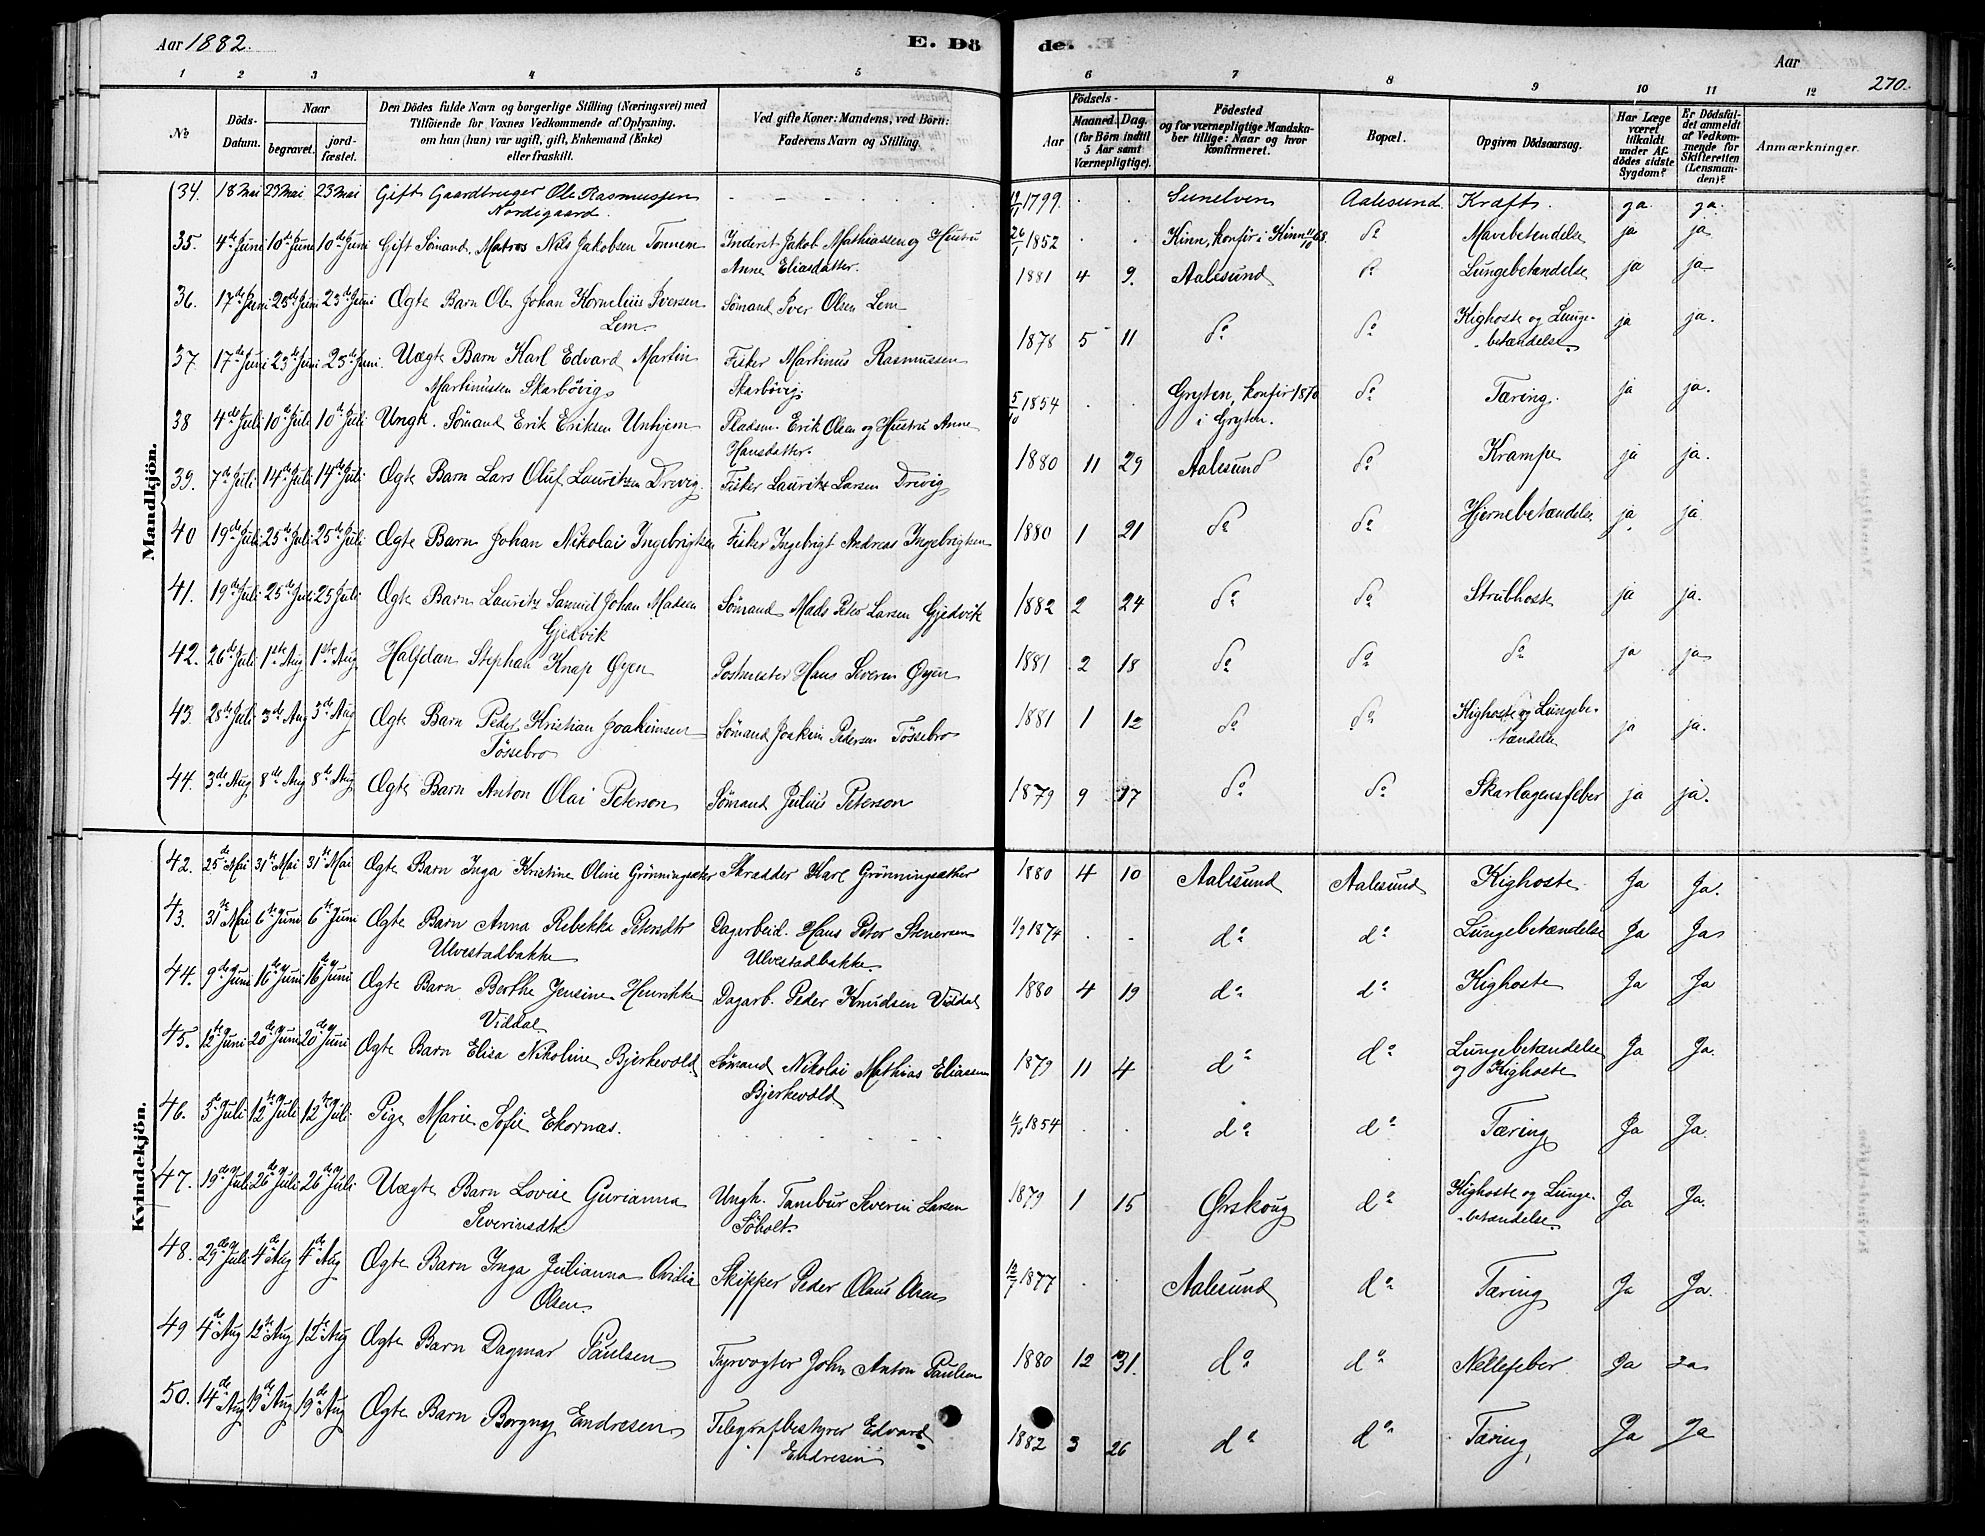 Aar 1882. E. Dö
de. Aar 270.
1 2 3 4 5 6 7 8 9 10 11 12
No Döds-Datum. Naar begravet. jord-fæstet. Den Dödes fulde Navn og borgerlige Stilling (Næringsvei) med Tilföiende for Voxnes Vedkommende af Oplysning, om han (hun) var ugift, gift, Enkemand (Enke) eller fraskilt. Ved gifte Koner: Mandens, ved Börn: Faderens Navn og Stilling. Födsels- Aar Maaned. Dag. (for Börn indtil 5 Aar samt Værnepligtige). Födested og for værnepligtige Mandskaber tillige: Naar og hvor konfirmeret. Bopæl. Opgiven Dödsaarsag. Har Læge været tilkaldt under Afdödes sidste Sygdom? Er Dödsfaldet anmeldt af Vedkommende for Skifteretten (Lensmanden)? Anmærkninger.
Mandkjön.
34. 18 Mai 23 Mai 23 Mai Gift Gaardbruger Ole Rasmussen 1799 Sunelven Aalesund Kræft. ja ja.
Nordigaard.
35. 4de Juni 10de Juni 10de Juni Gift Sömand, Matros Nils Jakobsen Tonnem Inderst Jakob Mathiassen og Hustru 26/1 1852 Kinn, konfir. i Kinn 11/10 68 do Mavebetendelse ja ja
Anne Eliasdatter.
36. 17de Juni 23de Juni 23de Juni Ægte Barn Ole Johan Kornelius Iversen Sömand Iver Olsen Lem 1881 4 9. Aalesund do Lungebetændelse ja ja
Lem
37. 17de Juni 23de Juni 23de Juni. Uægte Barn Karl Edvard Martin Fisker Martinus Rasmussen 1878 5 11 do do Kighoste og Lunge- ja ja.
Martinussen Skarbövig Skarbövig. betændelse
38 4de Juli 10de Juli 10de Juli Ungk. Sömand Erik Eriksen Unhjem Pladsm. Erik Olsen og Hustru Anne 5/10 1854 Gryten, konfir 1870 do Tæring. ja ja.
Hansdatter. i Gryten.
39. 7de Juli 14de Juli 14de Juli Ægte Barn Lars Oluf Lauritzen Drevig. Fisker Lauritz Larsen Drevig 1880 11 29 Aalesund do Krampe ja ja.
40 19de Juli 25de Juli 25de Juli Ægte Barn Johan Nikolai Ingebrigtsen Fisker Ingebrigt Andreas Ingebrigtsen 1880 1 21 do do Hjernebetændelse ja ja
41. 19de Juli 25de Juli 25 Juli Ægte Barn Lauritz Samuel Johan Madsen Sömand Mads Peter Larsen Gjedvik 1882 2 24 do do Strubhoste ja ja.
Gjedvik
42. 26de Juli 1ste Aug 1ste Aug Halfdan Stephan Knap Øyen Postmester Hans Severin Øyen 1881 2 18 do do do ja ja
43. 28de Juli 3de Aug 3de Aug Ægte Barn Peder Kristian Joakimsen Sömand Joakim Pedersen Tössebro 1881 1 12 do do Kighoste og Lungebe- ja ja.
Tössebro tændelse
44. 3de Aug 8de Aug 8de Aug Ægte Barn Anton Olai Peterson Sömand Julius Peterson 1879 9 17 do do Skarlagensfeber ja ja.
Kvindekjön.
42. 25de Mai 31te Mai 31te Mai Ægte Barn Inga Kristine Oline Grönningsæter Skrædder Karl Grönningsæther 1880 4 10 Aalesund Aalesund Kighoste Ja Ja.
43. 31te Mai 6te Juni 6te Juni Ægte Barn Anna Rebekka Petersdtr Dagarbeid. Hans Peter Stenersen 1874 do do Lungebetændelse Ja Ja
Ulvestadbakke Ulvestadbakke.
44. 9de Juni 16de Juni 16de Juni Ægte Barn Berthe Jensine Henrikke Dagarb. Peder Knudsen Viddal 1880 4 19 do do Kighoste Ja Ja
Viddal
45. 12te Juni 20de Juni 20de Juni Ægte Barn Elisa Nikoline Bjerkevold Sömand Nikolai Mathias Eliassen 1879 11 4 do do Lungebetændelse Ja Ja.
Bjerkevold og Kighoste
46. 5te Juli 12te Juli 12te Juli Pige Marie Sofie Ekornæs. 1854 do do Tæring Ja Ja.
47. 19de Juli 26de Juli 26de Juli Uægte Barn Lovise Gurianna Ungk. Tambur Severin Larsen 1879 1 15 Ørskoug do Kighoste og Lunge- Ja Ja.
Severinsdtr. Söholt. betændelse.
48. 29de Juli 4de Aug 4de Aug Ægte Barn Inga Julianna Ovidia Skipper Peder Olaus Olsen 1877 Aalesund do Tæring Ja Ja.
Olsen
49 4de Aug 12te Aug 12te Aug Ægte Barn Dagmar Paulsen Fyrvogter John Anton Paulsen 1880 12 31. do do Nellefeber Ja Ja
50. 14de Aug 19de Aug 19de Aug Ægte Barn Borgny Endresen Telegrafbestyrer Edvard 1882 3 26 do do Tæring, Ja Ja
Endresen